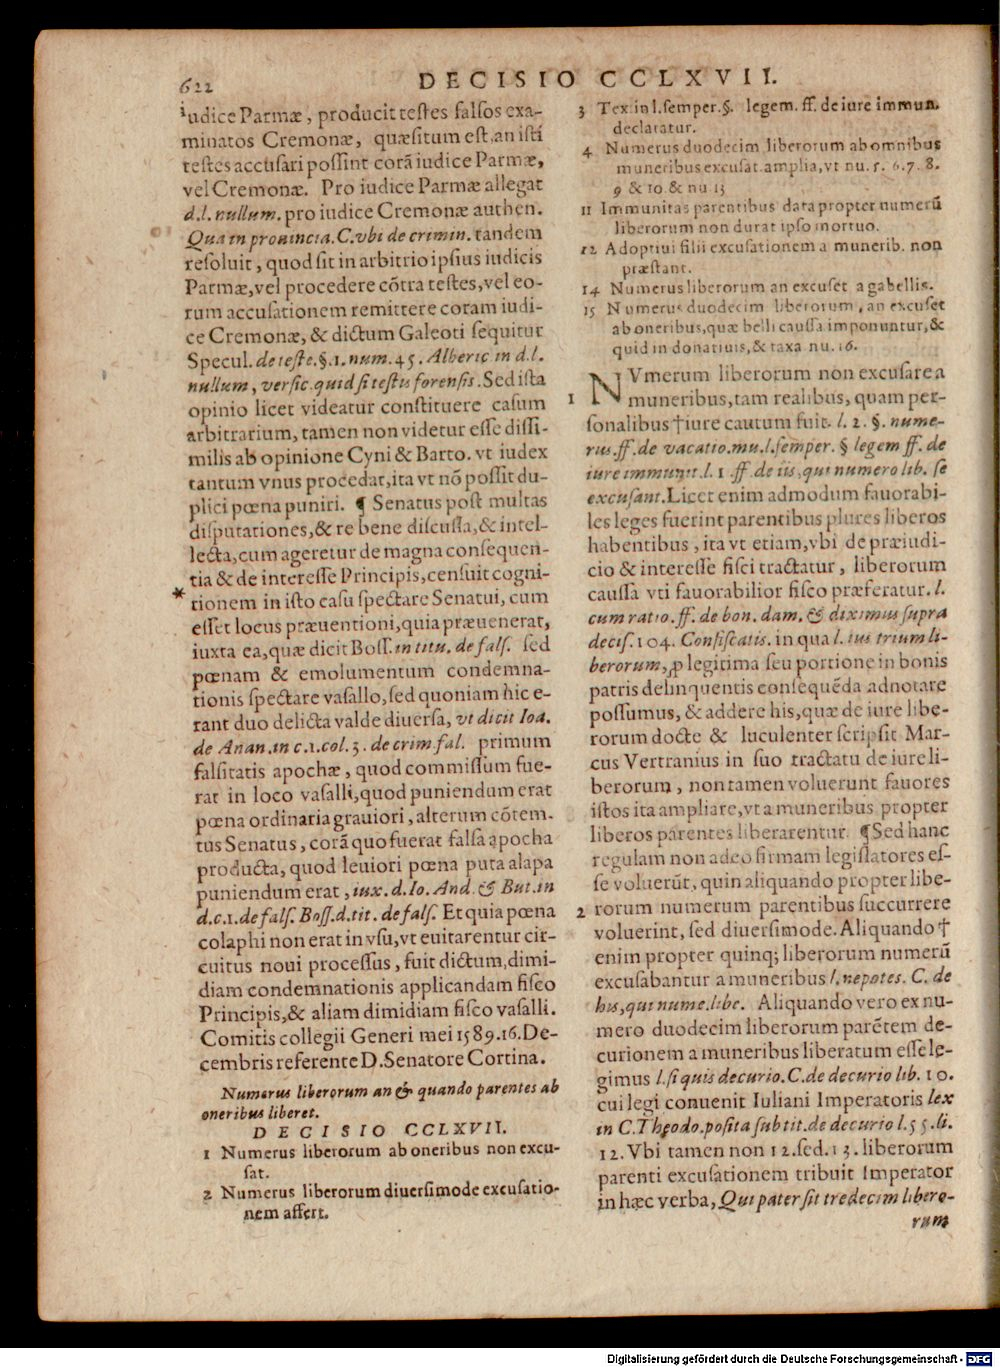 622
DECISIO CCLXVII.
iudice Parmæ, producit testes falsos exa-
minatos Cremonæ, quæsitum est, an isti
testes accusari possint corã iudice Parmæ,
vel Cremonæ. Pro iudice Parmæ allegat
d.l. nullum. pro iudice Cremonæ authen.
Qua in prouincia. C. vbi de crimin. tandem
resoluit, quod sit in arbitrio ipsius iudicis
Parmæ, vel procedere cõtra testes, vel eo-
rum accusationem remittere coram iudi-
ce Cremonæ, & dictum Galeoti sequitur
Specul. de teste. §. 1. num. 45. Alberic in d.l.
nullum, versic. quid si testis forensis. Sed ista
opinio licet videatur constituere casum
arbitrarium, tamen non videtur esse dissi-
milis ab opinione Cyni & Barto. vt iudex
tantum vnus procedat, ita vt nõ possit du-
plici pœna puniri. ¶ Senatus post multas
disputationes, & re bene discussa, & intel-
lecta, cum ageretur de magna consequen-
tia & de interesse Principis, censuit cogni-
* tionem in isto casu spectare Senatui, cum
esset locus præuentioni, quia præuenerat,
iuxta ea, quæ dicit Boss. in titu. de fals. sed
pœnam & emolumentum condemna-
tionis spectare vasallo, sed quoniam hic e-
rant duo delicta valde diuersa, vt dicit Ioa.
de Anan. in c. 1. col. 3. de crim fal. primum
falsitatis apochæ, quod commissum fue-
rat in loco vasalli, quod puniendum erat
pœna ordinaria grauiori, alterum cõtem-
tus Senatus, corã quo fuerat falsa apocha
producta, quod leuiori pœna puta alapa
puniendum erat, iux. d. Io. And. & But. in
d.c.1. de fals. Boss. d. tit. de fals. Et quia pœna
colaphi non erat in vsu, vt euitarentur cir-
cuitus noui processus, fuit dictum, dimi-
diam condemnationis applicandam fisco
Principis, & aliam dimidiam fisco vasalli.
Comitis collegii Generi mei 1589. 16. De-
cembris referente D. Senatore Cortina.
Numerus liberorum an & quando parentes ab
oneribus liberet.
DECISIO CCLXVII.
1 Numerus liberorum ab oneribus non excu-
sat.
2 Numerus liberorum diuersimode excusatio-
nem affert.
3 Tex in l. semper. §. legem. ff. de iure immun.
declaratur.
4 Numerus duodecim liberorum ab omnibus
muneribus excusat. amplia, vt nu. 5. 6. 7. 8.
9 & 10. & nu 13
11 Immunitas parentibus data propter numerũ
liberorum non durat ipso mortuo.
12 Adoptiui filii excusationem a munerib. non
præstant.
14 Numerus liberorum an excuset a gabellis.
15 Numerus duodecim liberorum, an excuset
ab oneribus, quæ belli caussa imponuntur, &
quid in donatiuis, & taxa nu. 16.
NVmerum liberorum non excusare a
1 muneribus, tam realibus, quam per-
sonalibus † iure cautum fuit. l. 2. §. nume-
rus. ff. de vacatio. mu. l. semper. § legem ff. de
iure immunit. l. 1. ff. de iis, qui numero lib. se
excusant. Licet enim admodum fauorabi-
les leges fuerint parentibus plures liberos
habentibus, ita vt etiam, vbi de præiudi-
cio & interesse fisci tractatur, liberorum
caussa vti fauorabilior fisco præferatur. l.
cum ratio. ff. de bon. dam. & diximus supra
decis. 104. Confiscatis. in qua l. ius trium li-
berorum, ꝓ legitima seu portione in bonis
patris delinquentis consequẽda adnotare
possumus, & addere his, quæ de iure libe-
rorum docte & luculenter scripsit Mar-
cus Vertranius in suo tractatu de iure li-
berorum, non tamen voluerunt fauores
istos ita ampliare, vt a muneribus propter
liberos parentes liberarentur. ¶ Sed hanc
regulam non adeo firmam legislatores es-
se voluerũt, quin aliquando propter libe-
2 rorum numerum parentibus succurrere
voluerint, sed diuersimode. Aliquando †
enim propter quinq; liberorum numerũ
excusabantur a muneribus l. nepotes. C. de
his, qui nume. libe. Aliquando vero ex nu-
mero duodecim liberorum parẽtem de-
curionem a muneribus liberatum esse le-
gimus l. si quis decurio. C. de decurio lib. 10.
cui legi conuenit Iuliani Imperatoris lex
in C. Theodo. posita sub tit. de decurio l. 55. li.
12. Vbi tamen non 12. sed. 13. liberorum
parenti excusationem tribuit Imperator
in hæc verba, Qui pater sit tredecim libero-
rum
Digitalisierung gefördert durch die Deutsche Forschungsgemeinschaft - DFG